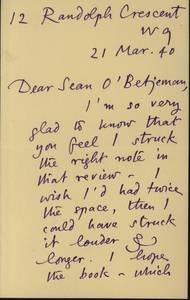 12 Randolph Crescent
W9
21 Mar. 40
Dear Sean O'Betjeman,
I'm so very
glad to know that
you feel I struck
the right note in
that review - I
wish I'd had twice
the space, then I
could have struck
it louder &
longer. I hope
the book - which